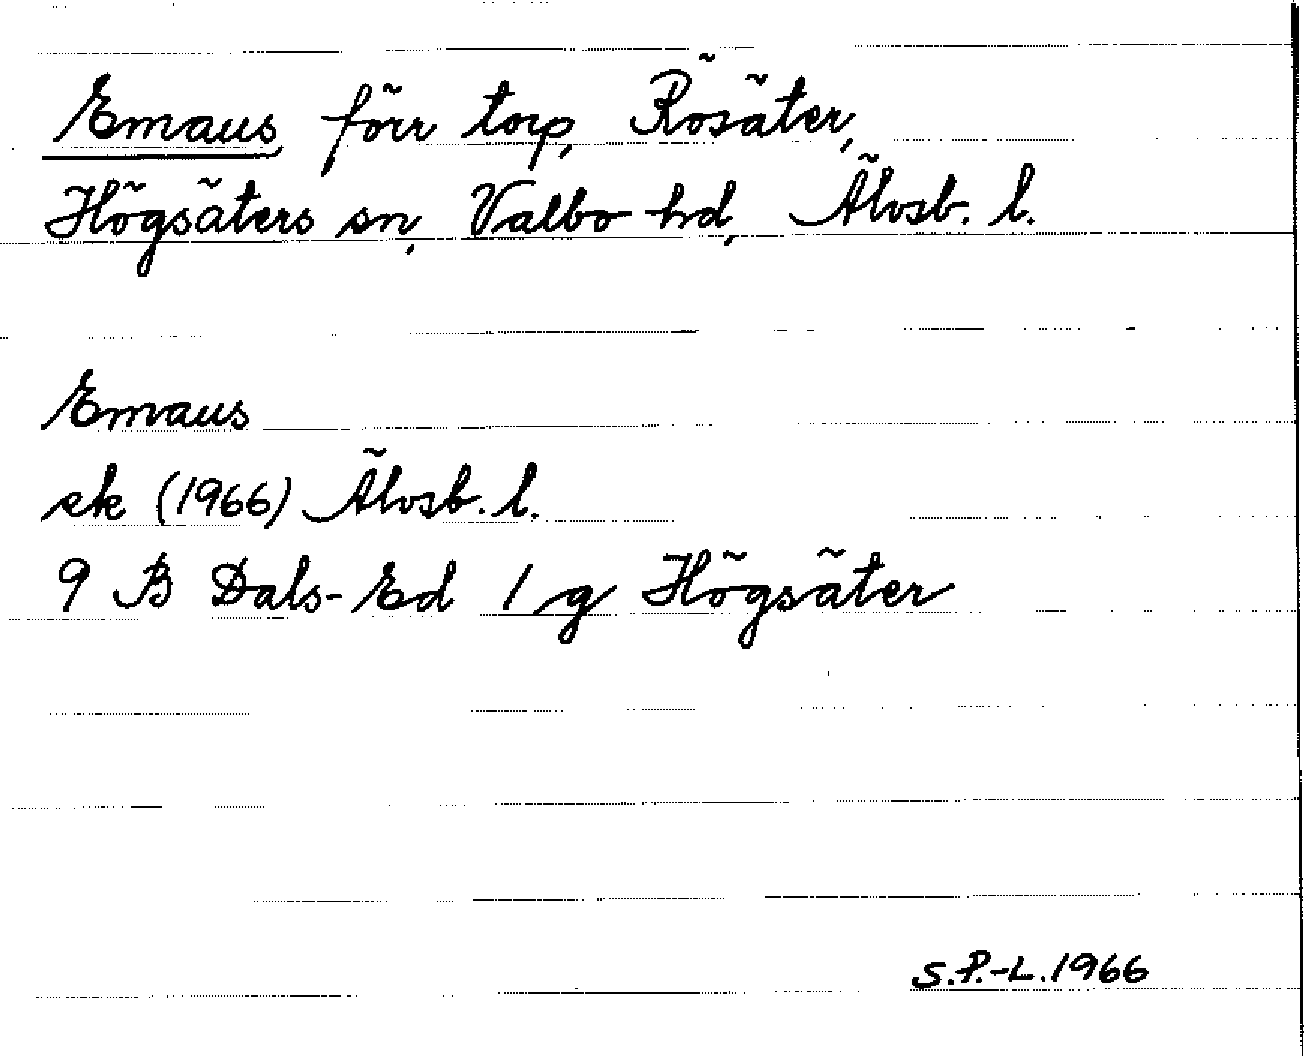 Emaus, förr torp, Rösäter,
Högsäters sn, Valbo hd, Älvsb. l.
Emaus
ek (1966) Älvsb. l.
9 B Dals-Ed 1 g Högsäter
S.P.-L. 1966